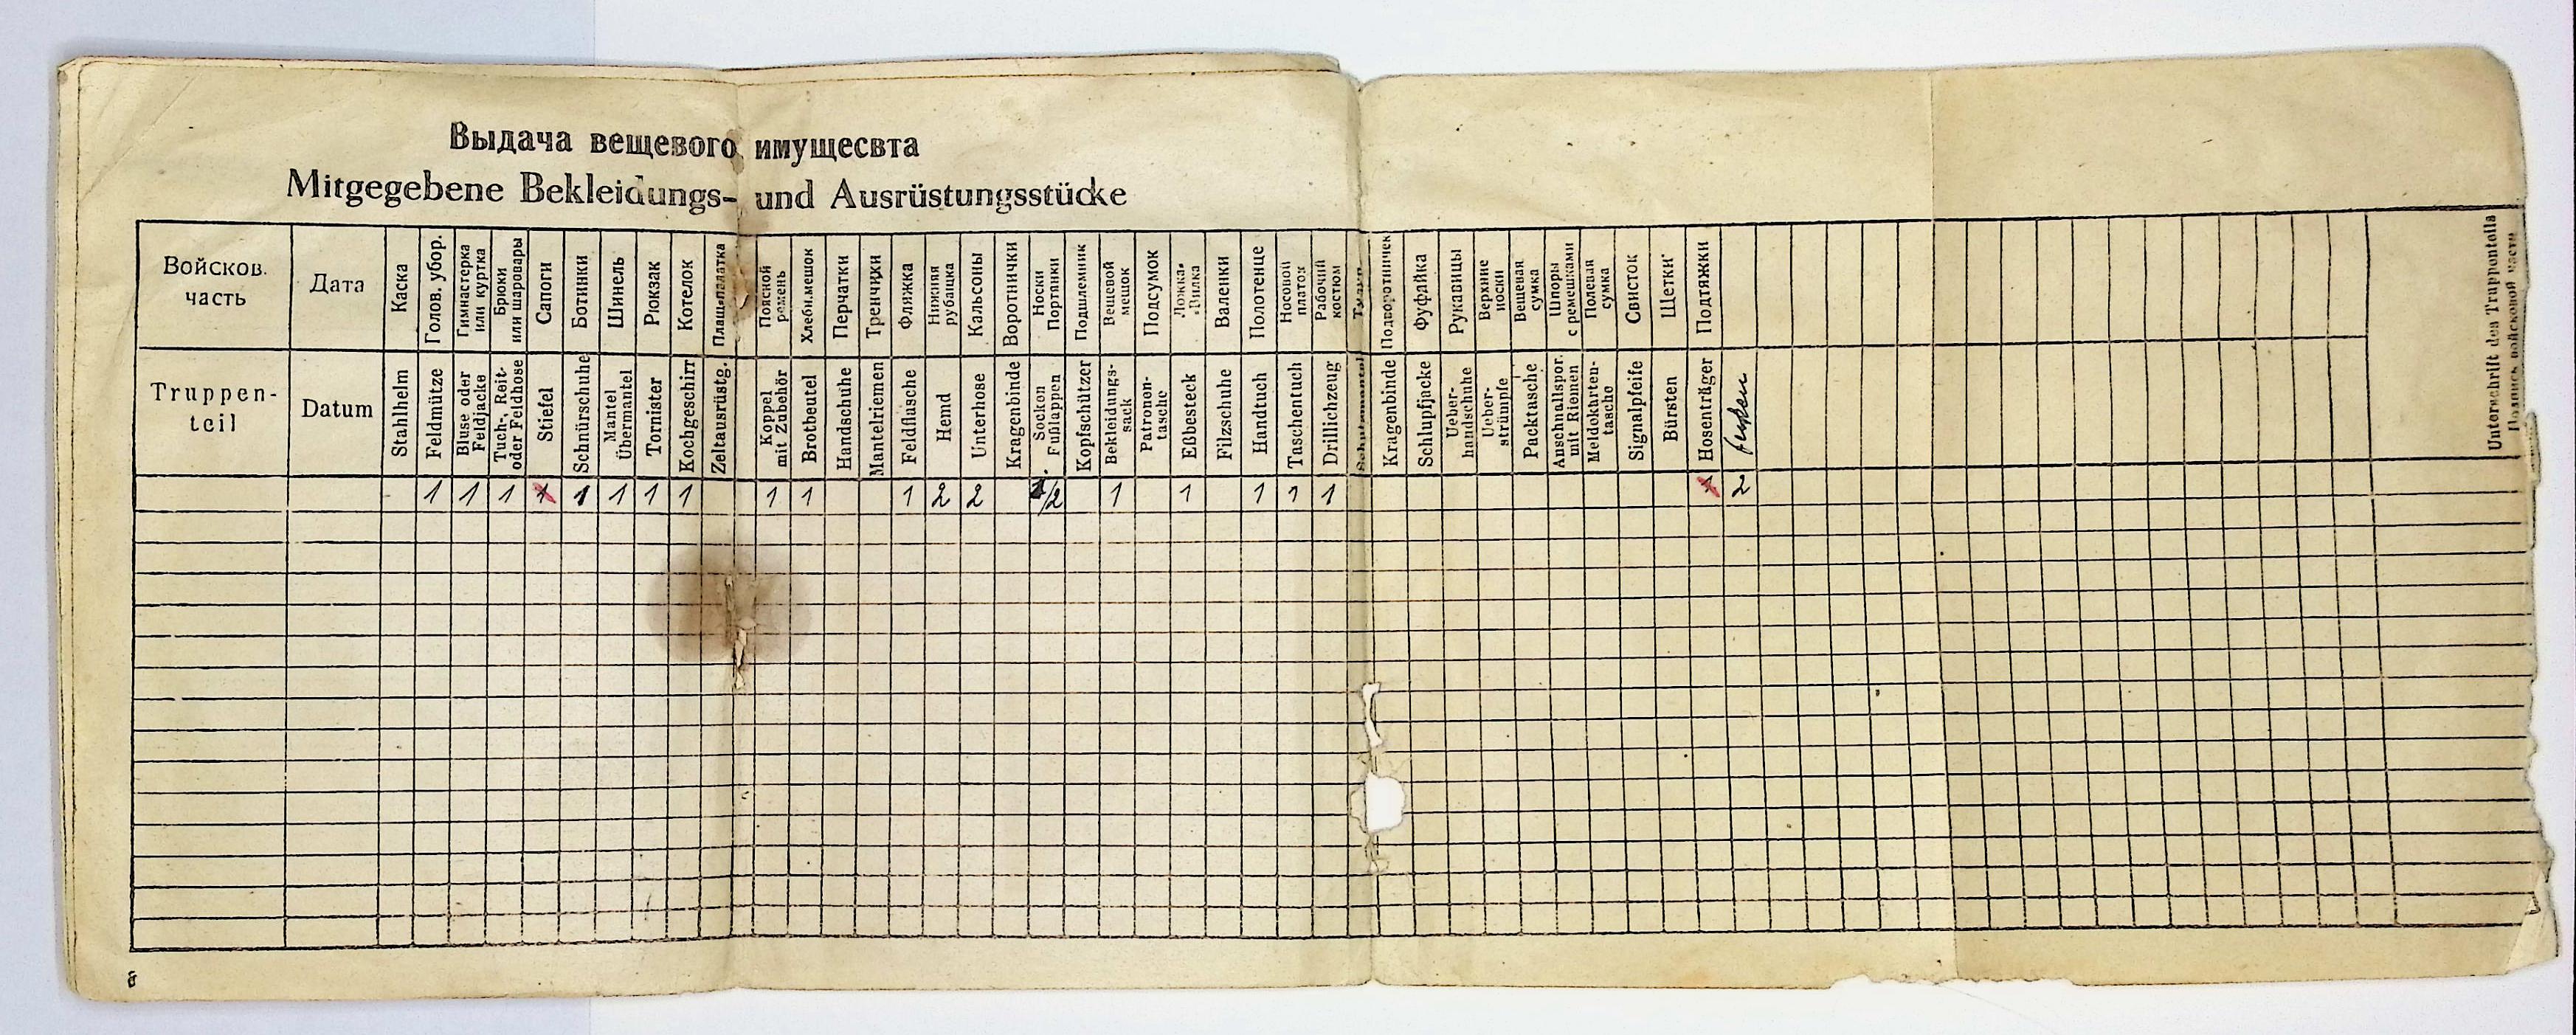 Выдача вещевого имущесвта
Mitgegebene Bekleidungs- und Ausrüstungsstücke
Войсков.
часть
Дата
Каска
Голов. убор.
Гимнастерка
или куртка
Брюки
или шаровары
Сапоги
Ботинки
Шинель
Рюкзак
Котелок
Плащ-палатка
Поясной
ремень
Хлебн.мешок
Перчатки
Тренчики
Фляжка
Нижняя
рубашка
Кальсоны
Воротнички
Носки
Портянки
Подшлемник
Вещевой
мешок
Подсумок
Ложка-
Валенки
Полотенце
Носовой
платок
Рабочий
костюм
Подворотничек
Фуфайка
Рукавицы
Верхние
носки
Вещевая
сумка
Шпоры
с ремешками
Полевая
сумка
Свисток
Щетки
Подтяжки
Unterschrift des Truppenteils
Подпись войсковой части
Truppen-
teil
Datum
Stahlhelm
Feldmütze
Bluse oder
Feldjacke
Tuch-, Reit-
oder Feldhose
Stiefel
Schnürschuhe
Mantel
Übermantel
Tornister
Kochgeschirr
Zeltausrüstg.
Koppel
mit Zubehör
Brotbeutel
Handschuhe
Mantelriemen
Feldflasche
Hemd
Unterhose
Kragenbinde
Socken
Fußlappen
Kopfschützer
Bekleidungs-
sack
Patronen-
tasche
Eßbesteck
Filzschuhe
Handtuch
Taschentuch
Drillichzeug
Kragenbinde
Schlupfjacke
Ueber-
handschuhe
Ueber-
strümpfe
Packtasche
Anschnallspor.
mit Riemen
Meldekarten-
tasche
Signalpfeife
Bürsten
Hosenträger
1 1 1 1 1 1 1 1 1 1 1 2 2 1/2 1 1 1 1 1 1 2
8